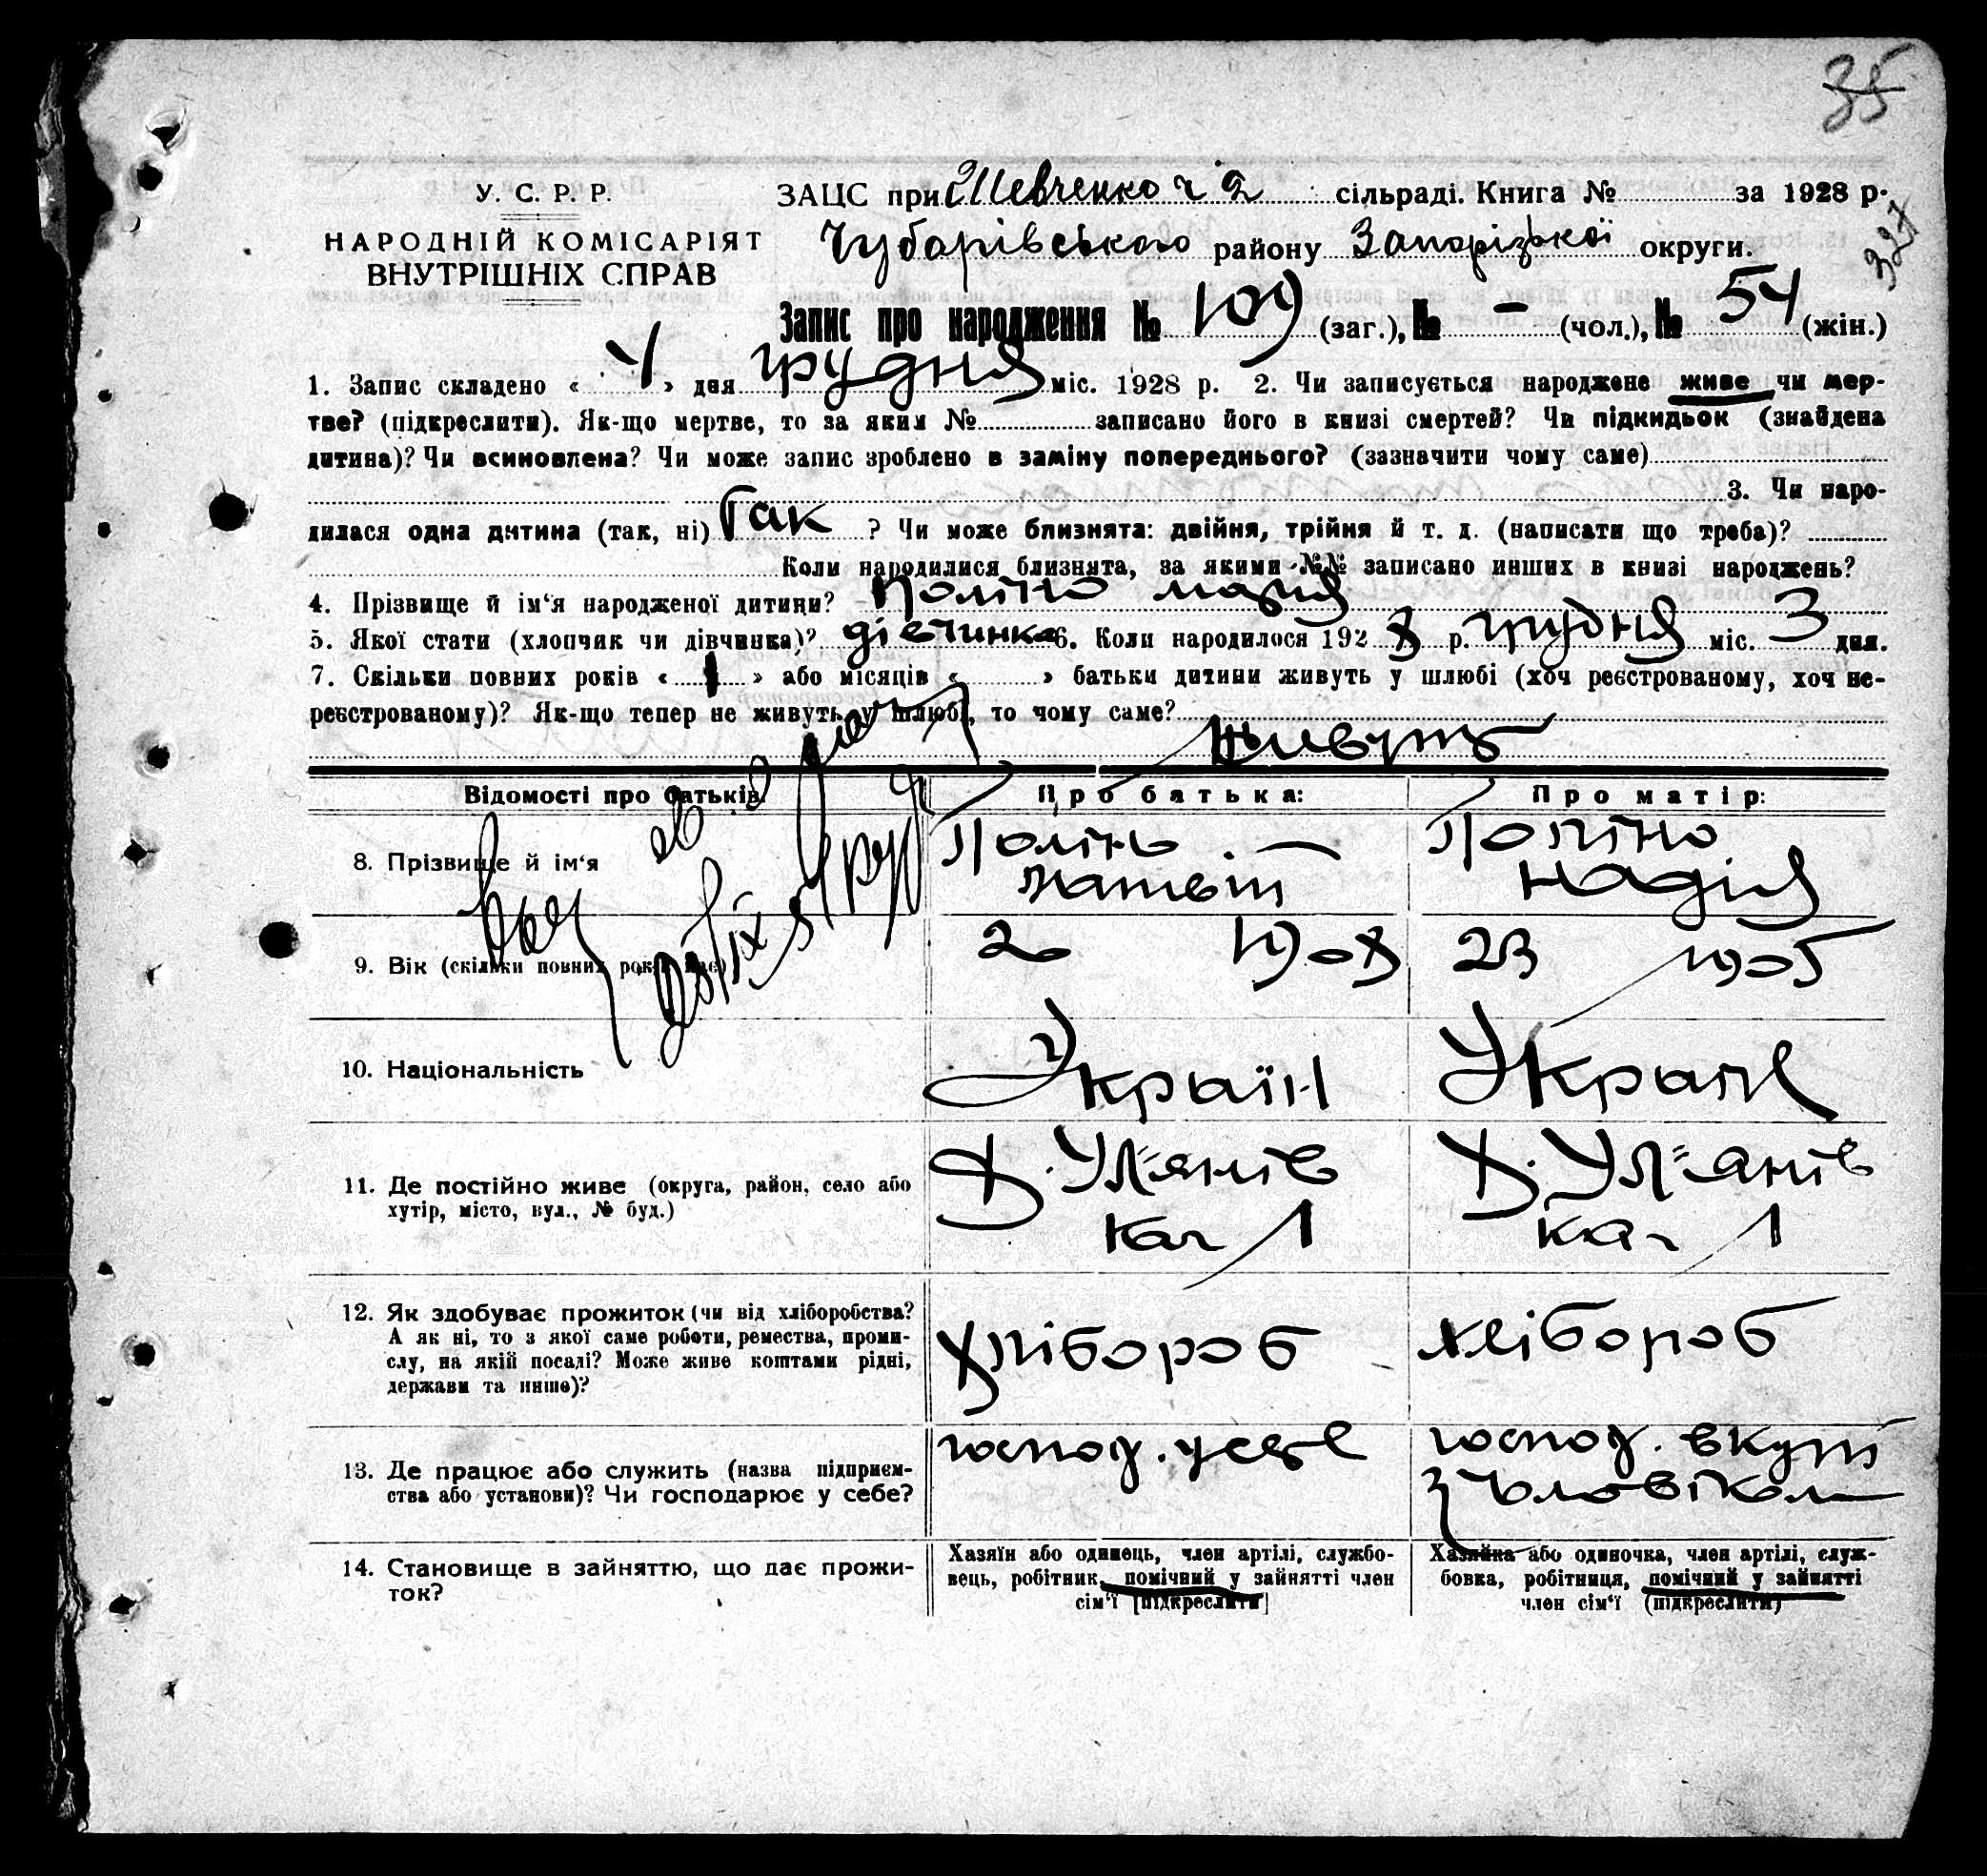 35
327
У. С. Р. Р.
НАРОДНІЙ КОМІСАРІЯТ
ВНУТРІШНІХ СПРАВ
ЗАЦС при Шевченко ч 2 сільраді. Книга № за 1928 р.
Чубарівського району Запорізької округи.
Запис про народження № 109 (заг.), № - (чол.), № 54 (жін.)
1. Запис складено « 4 » дня грудня міс. 1928 р. 2. Чи записується народжене живе чи мер-
тве? (підкреслити). Як-що мертве, то за яким № записано його в книзі смертей? Чи підкидьок (знайдена
дитина)? Чи всиновлена? Чи може запис зроблено в заміну попереднього? (зазначити чому саме)
3. Чи наро-
дилася одна дитина (так, ні) Так ? Чи може близнята: двійня, трійня й т. д. (написати що треба)?
Коли народилися близнята, за якими №№ записано инших в книзі народжень?
4. Прізвище й ім'я народженої дитини? Поліно Марія
5. Якої стати (хлопчик чи дівчинка)? дівчинка 6. Коли народилося 1928 р. грудня міс. 3 дня.
7. Скільки повних років « 1 » або місяців « » батьки дитини живуть у шлюбі (хоч реєстрованому, хоч не-
реєстрованому)? Як-що тепер не живуть у шлюбі, то чому саме?
Живуть
Відомості про батьків Про батька: Про матір:
8. Прізвище й ім'я Полінь Матвій Поліно Надія
9. Вік (скільки повних років має) 20 1908 23 1905
10. Національність Україн Украін
11. Де постійно живе (округа, район, село або
хутір, місто, вул., № буд.)
Х. Ул'янів
ка ч 1
Х. Ул'янів
ка ч 1
12. Як здобуває прожиток (чи від хліборобства?
А як ні, то з якої саме роботи, ремества, проми-
слу, на якій посаді? Може живе коштами рідні,
держави та инше)?
Хлібороб хлібороб
13. Де працює або служить (назва підприєм-
ства або установи)? Чи господарює у себе?
господ. усебе
господ. вкупі
з чоловіком
14. Становище в зайняттю, що дає прожи-
ток?
Хазяїн або одинець, член артілі, службо-
вець, робітник, помічний у зайнятті член
сім'ї [підкреслити]
Хазяйка або одиночка, член артілі, служ-
бовка, робітниця, помічний у зайнятті
член сім'ї (підкреслити)